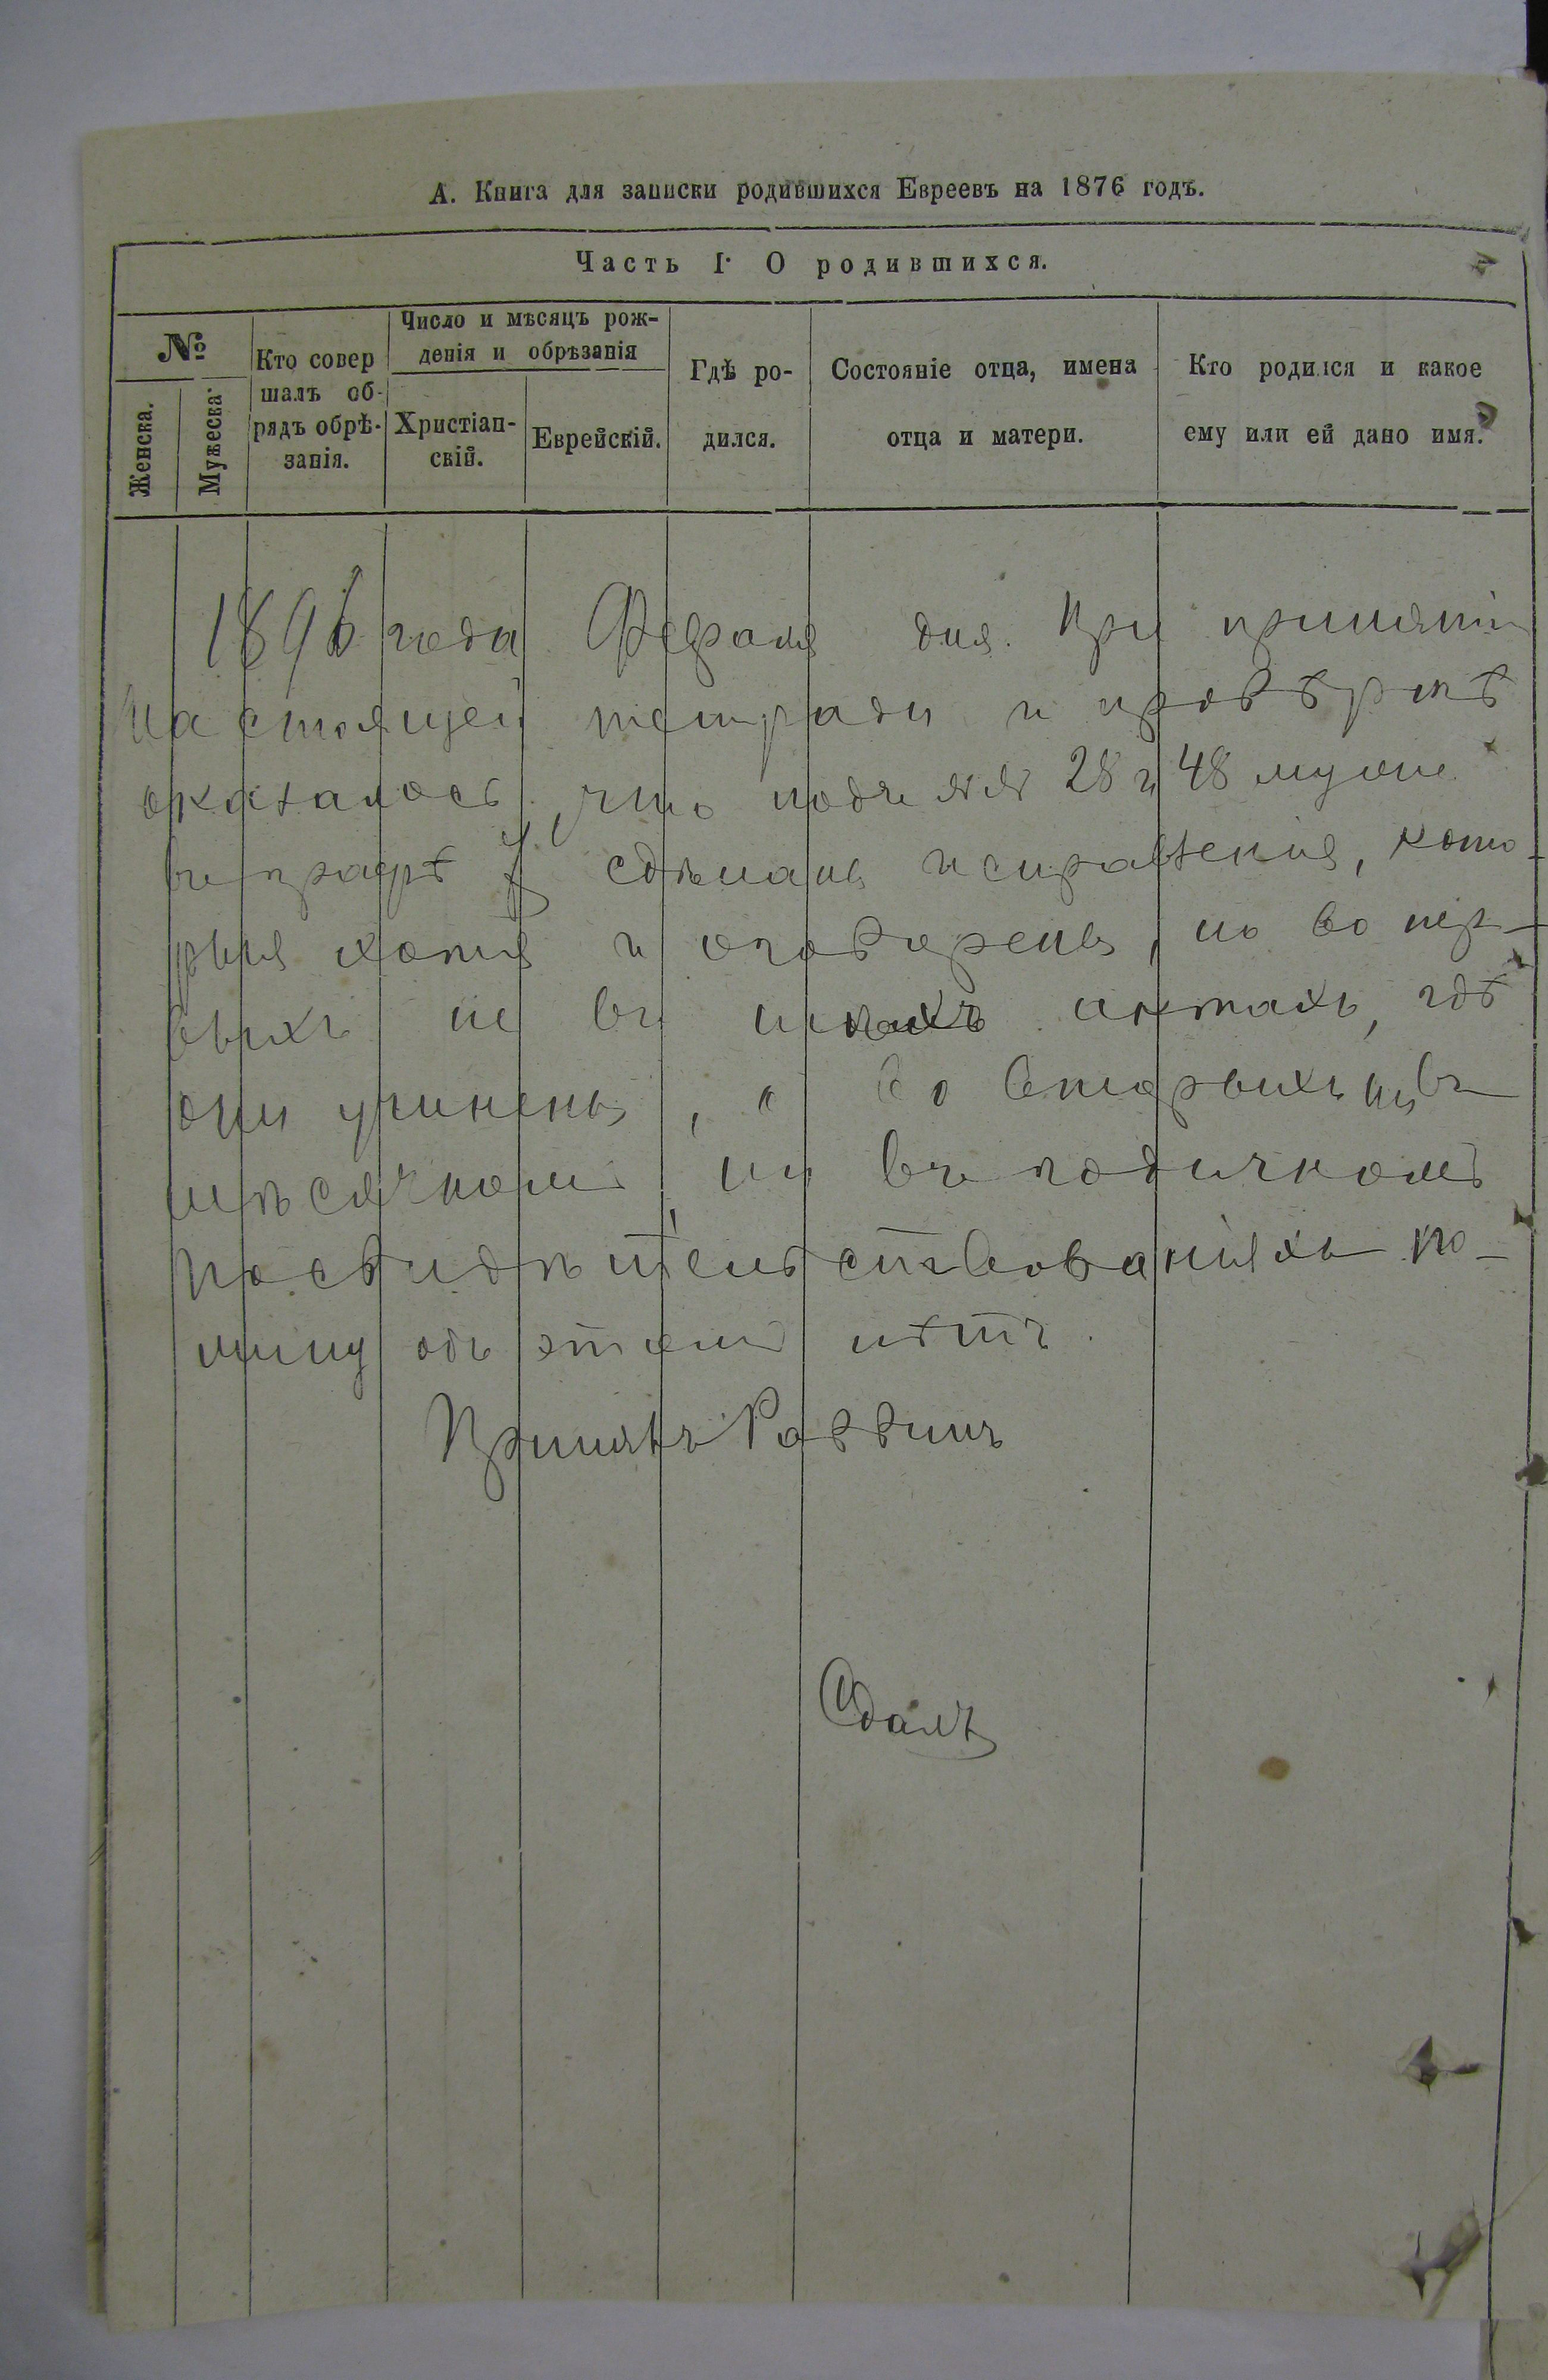 А. Книга для записки родившихся Евреевъ на 1876 годъ.
Часть I. О родившихся.
№
Женска.
Мужеска.
Кто совер
шалъ об-
рядъ обрѣ-
занія.
Число и мѣсяцъ рож-
денія и обрѣзанія
Христіан-
скій.
Еврейскій.
Гдѣ ро-
дился.
Состояніе отца, имена
отца и матери.
Кто родился и какое
ему или ей дано имя.
1896 года Февраля дня. При принятіи
настоящей тетради и провѣркѣ
оказалось, что подъ №№ 28 и 48 мужс.
въ графѣ сдѣланы исправленія, кото-
рыя хотя и оговорены, но во пер-
выхъ не въ тѣхъ актахъ, гдѣ
они учинены, а во вторыхъ ни въ
мѣсячномъ, ни въ годичномъ
посвидѣтельствованіяхъ по-
мину объ этомъ нѣтъ.
Принялъ Раввинъ
Сдалъ